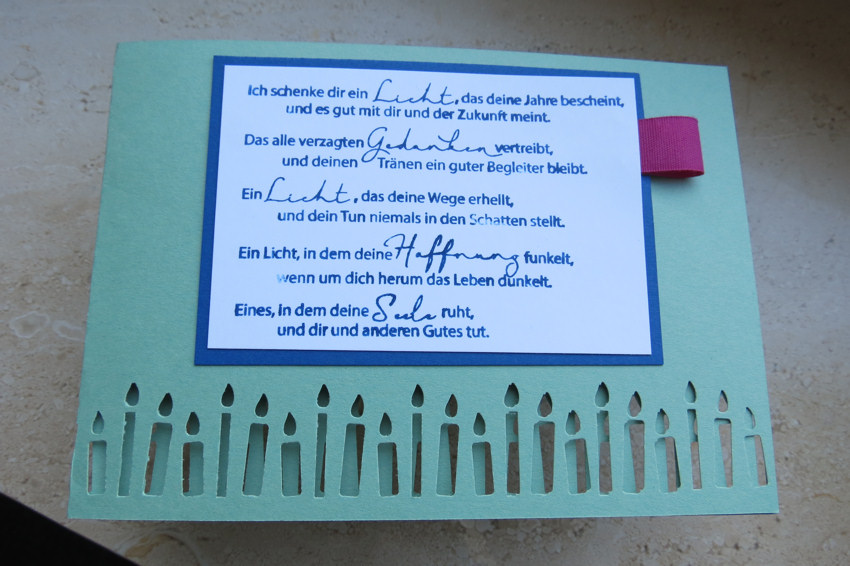 Ich schenke dir ein Licht, das deine Jahre bescheint,
und es gut mit dir und der Zukunft meint.
Das alle verzagten Gedanken vertreibt,
und deinen Tränen ein guter Begleiter bleibt.
Ein Licht, das deine Wege erhellt,
und dein Tun niemals in den Schatten stellt.
Ein Licht, in dem deine Hoffnung funkelt,
wenn um dich herum das Leben dunkelt.
Eines, in dem deine Seele ruht,
und dir und anderen Gutes tut.